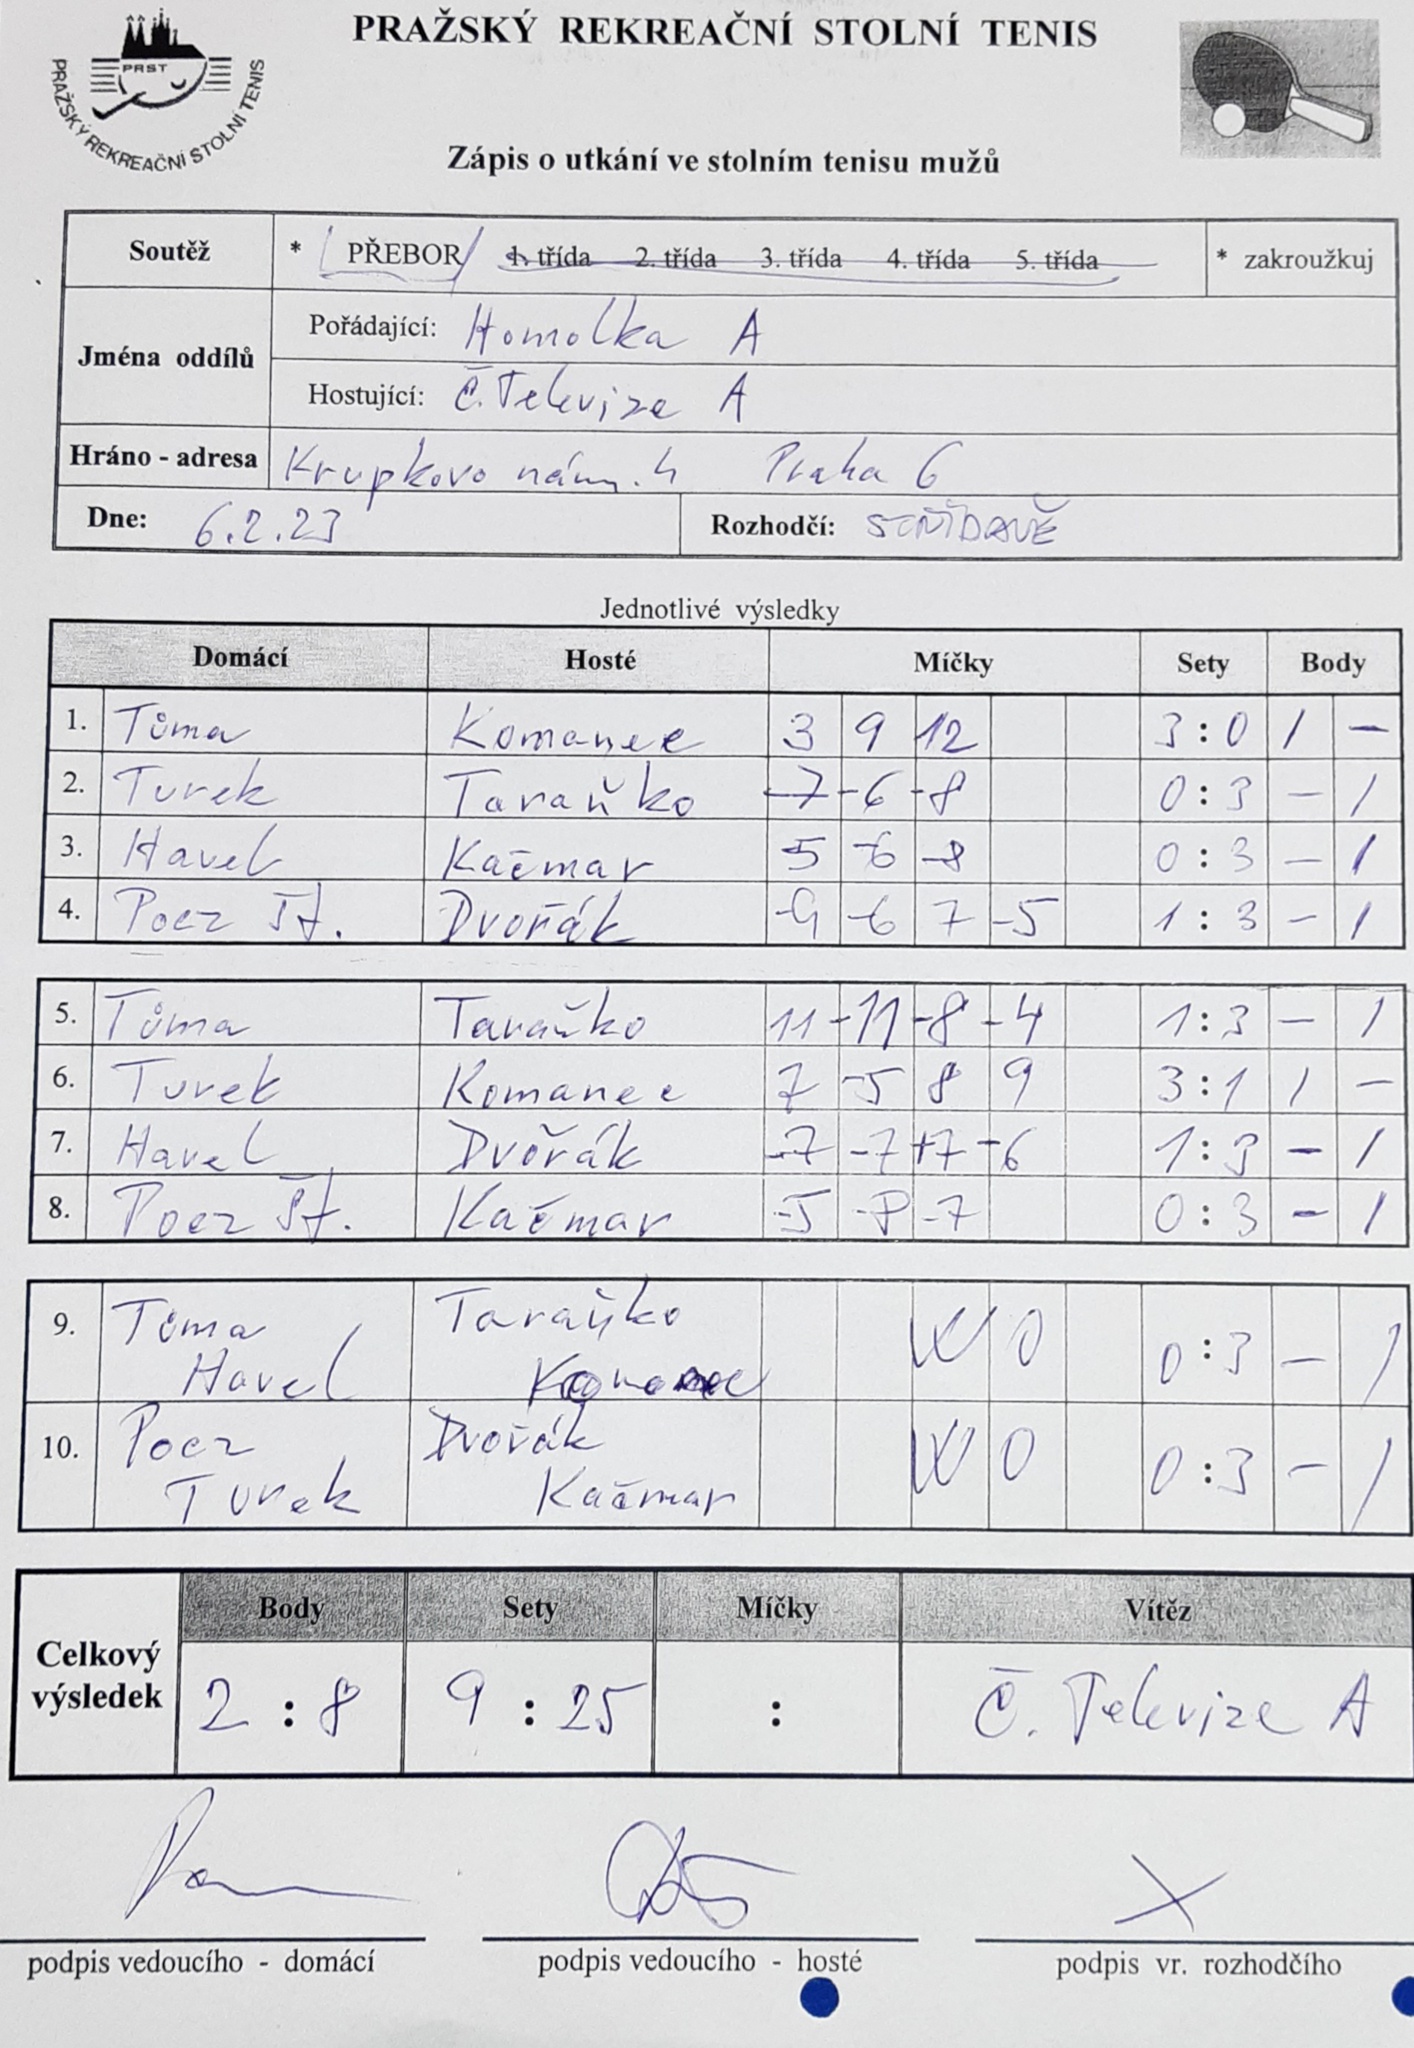 PRAŽSKÝ REKREAČNÍ STOLNÍ TENIS
PRST
PRAŽSKÝ REKREAČNÍ STOLNÍ TENIS
Zápis o utkání ve stolním tenisu mužů
Soutěž * PŘEBOR 1. třída 2. třída 3. třída 4. třída 5. třída * zakroužkuj
Jména oddílů
Pořádající: Homolka A
Hostující: Č. Televize A
Hráno - adresa Krupkovo nám. 4 Praha 6
Dne: 6.2.23 Rozhodčí: STŘÍDAVĚ
Jednotlivé výsledky
Domácí Hosté Míčky Sety Body
1. Tůma Komanec 3 9 12 3 : 0 1 -
2. Turek Taraňko -7 -6 -8 0 : 3 - 1
3. Havel Kačmar -5 -6 -8 0 : 3 - 1
4. Pocz St. Dvořák -9 -6 7 -5 1 : 3 - 1
5. Tůma Taraňko 11 -11 -8 -4 1 : 3 - 1
6. Turek Komanec 7 -5 8 9 3 : 1 1 -
7. Havel Dvořák -7 -7 +7 -6 1 : 3 - 1
8. Pocz St. Kačmar -5 -8 -7 0 : 3 - 1
9. Tůma Taraňko W O 0 : 3 - 1
Havel Komanec
10. Pocz Dvořák W O 0 : 3 - 1
Turek Kačmar
Body Sety Míčky Vítěz
Celkový výsledek 2 : 8 9 : 25 : Č. Televize A
podpis vedoucího - domácí podpis vedoucího - hosté podpis vr. rozhodčího